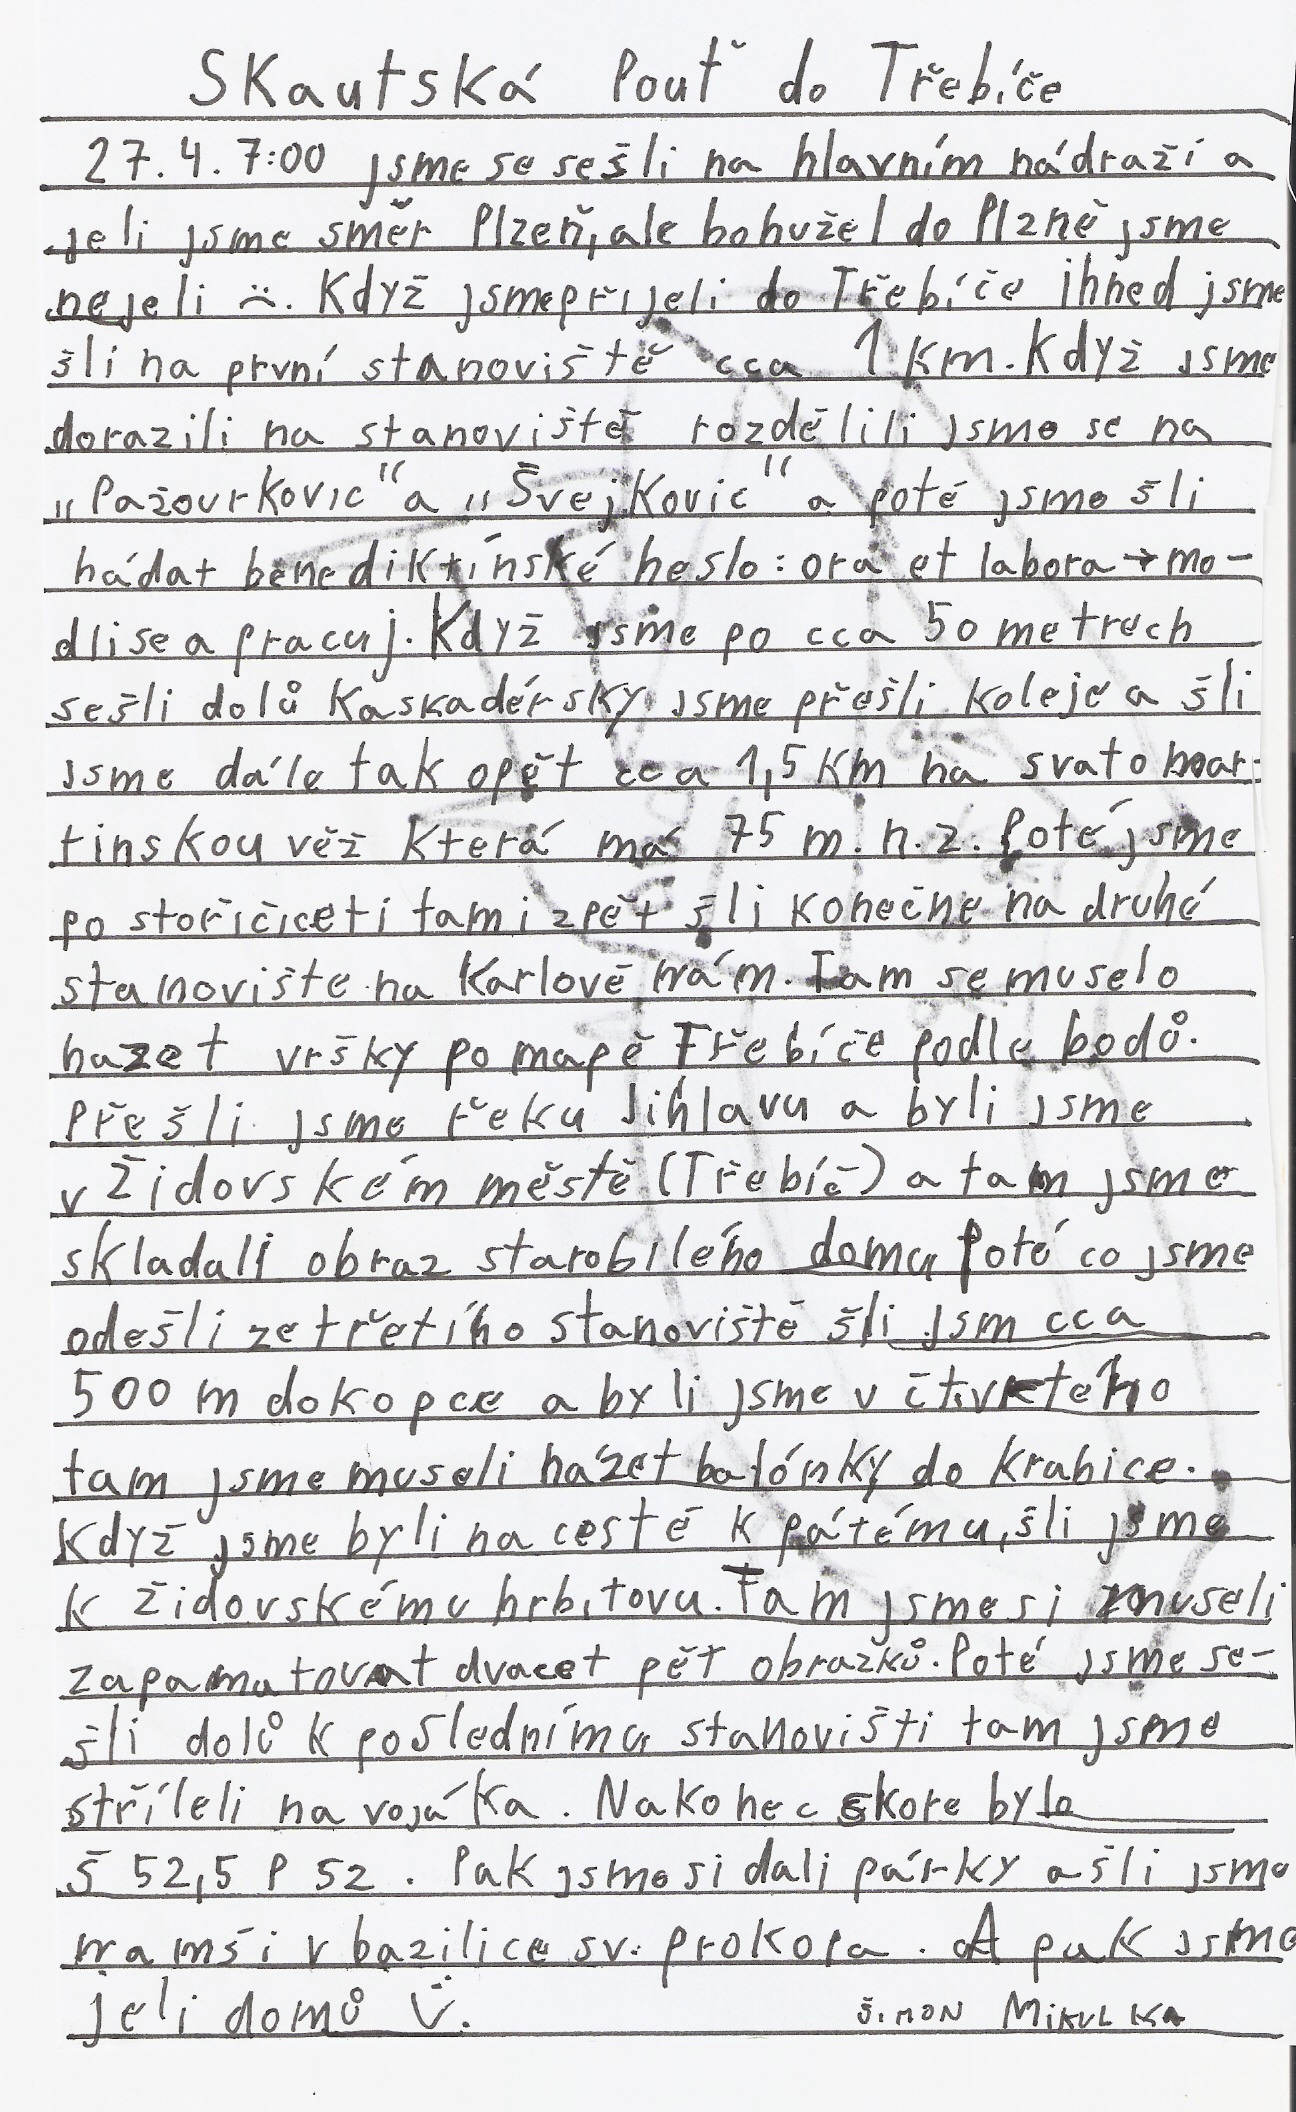 Skautská Pouť do Třebíče
27.4. 7:00 jsme se sešli na hlavním nádraží a
jeli jsme směr Plzeň, ale bohužel do Plzně jsme
nejeli :(. Když jsme přijeli do Třebíče ihned jsme
šli na první stanoviště cca 1 km. Když jsme
dorazili na stanoviště rozdělili jsme se na
„Pažourkovic“ a „Švejkovic“ a poté jsme šli
hádat benediktínské heslo: ora et labora → mo-
dli se a pracuj. Když jsme po cca 50 metrech
sešli dolů kaskadérsky jsme přešli koleje a šli
jsme dále tak opět cca 1,5 km na svatomar-
tinskou věž která má 75 m. n. z. Poté jsme
po stořičiceti tam i zpět šli konečne na druhé
stanovište na Karlově nám. Tam se muselo
hazet vršky po mapě Třebíče podle bodů.
Přešli jsme řeku Jihlavu a byli jsme
v Židovském městě (Třebíč) a tam jsme
skladali obraz starobilého domu Poté co jsme
odešli ze třetího stanoviště šli jsm cca
500 m do kopce a byli jsme v čtvrtého
tam jsme museli házet balónky do krabice.
Když jsme byli na cestě k pátému, šli jsme
k židovskému hrbitovu. Tam jsme si museli
zapamatovat dvacet pět obrazků. Poté jsme se-
šli dolů k poslednímu stanovišti tam jsme
stříleli na vojáka. Nakonec skore bylo
Š 52,5 P 52. Pak jsme si dali párky a šli jsme
na mši v bazilice sv. prokopa. A pak jsme
jeli domů Ü.
Šimon Mikulka